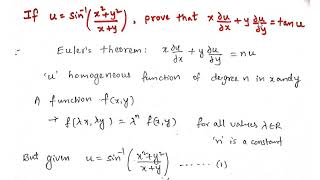 If u = sin⁻¹(x²+y²/x+y), prove that x ∂u/∂x + y ∂u/∂y = tan u
∵ Euler's theorem: x ∂u/∂x + y ∂u/∂y = nu
'u' homogeneous function of degree n in x and y
A function f(x,y)
→ f(λx, λy) = λⁿ f(x,y) for all values λ∈R
'n' is a constant
But given u = sin⁻¹(x²+y²/x+y) ...... (1)